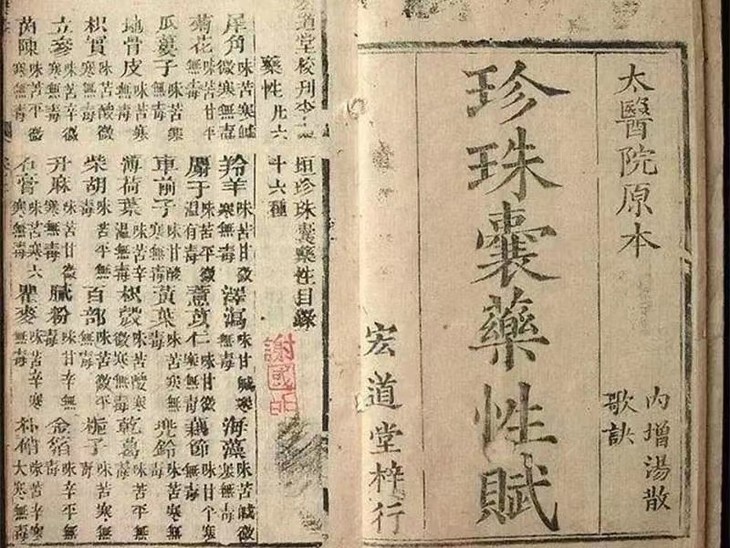 太醫院原本
珍珠囊藥性賦
內增湯散
歌訣
宏道堂梓行
宏道堂校刋李
垣珍珠囊藥性目錄
藥性凡六
十六種
犀角 味苦寒鹹微寒無毒
羚羊 味苦甘微寒無毒
澤瀉 味甘鹹寒無毒
海藻 味苦鹹寒無毒
菊花 味苦甘平無毒
味苦平微溫有毒
薏苡仁 味甘微寒無毒
藕節
瓜蔞子 味苦寒無毒
車前子 味甘酸寒無毒
黃葉 味苦寒無毒
兜鈴 味苦寒無毒
地骨皮 味苦寒無毒
薄荷葉 味苦辛溫無毒
枳殼 味苦酸微寒無毒
乾葛 味苦平無毒
枳實 味苦酸微寒無毒
柴胡 味苦平無毒
百部 味苦微平無毒
梔子 味苦寒無毒
味苦辛寒無毒
升麻 味苦甘無毒
膩粉 味甘辛無毒
金箔 味辛平無毒
茵陳 味苦平微寒無毒
石膏 味苦寒六寒無毒
瞿麥 味苦辛寒無毒
朴硝 味苦辛大寒無毒
謝國